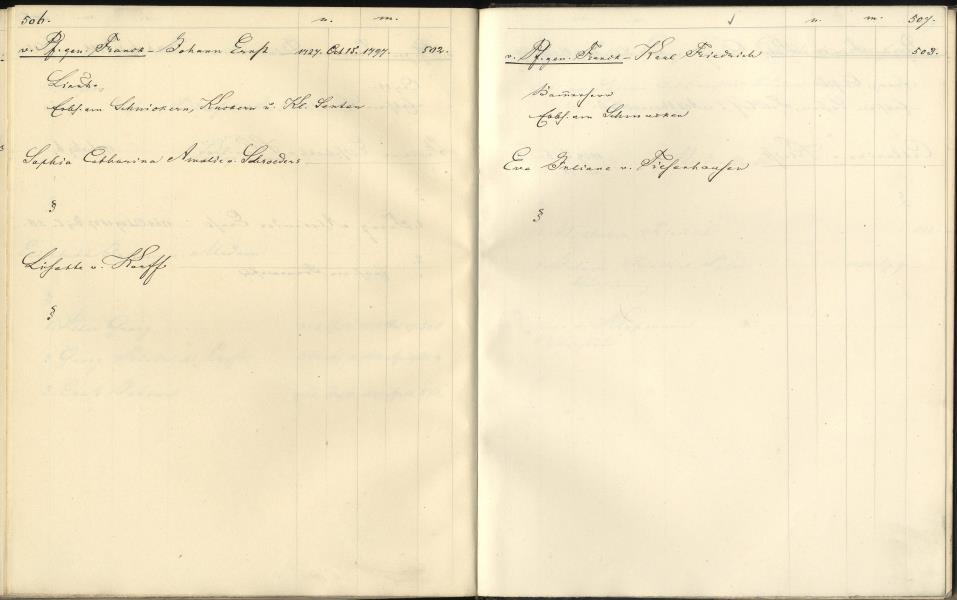 506. n. m.
v. Pf. gen. Franck - Johann Ernst 1727. Oct 15. 1797. 502.
Lieut.
Erbh. am Schnickern, Knokern u. Kl. Senten
Sophia Catharina Amalie v. Schroeders
§
Lisette v. Korff
§
n. m. 507.
v. Pf. gen. Franck - Karl Friedrich 503.
Bannerherr
Erbh. am Schmucken
Eva Juliane v. Tiesenhausen
§